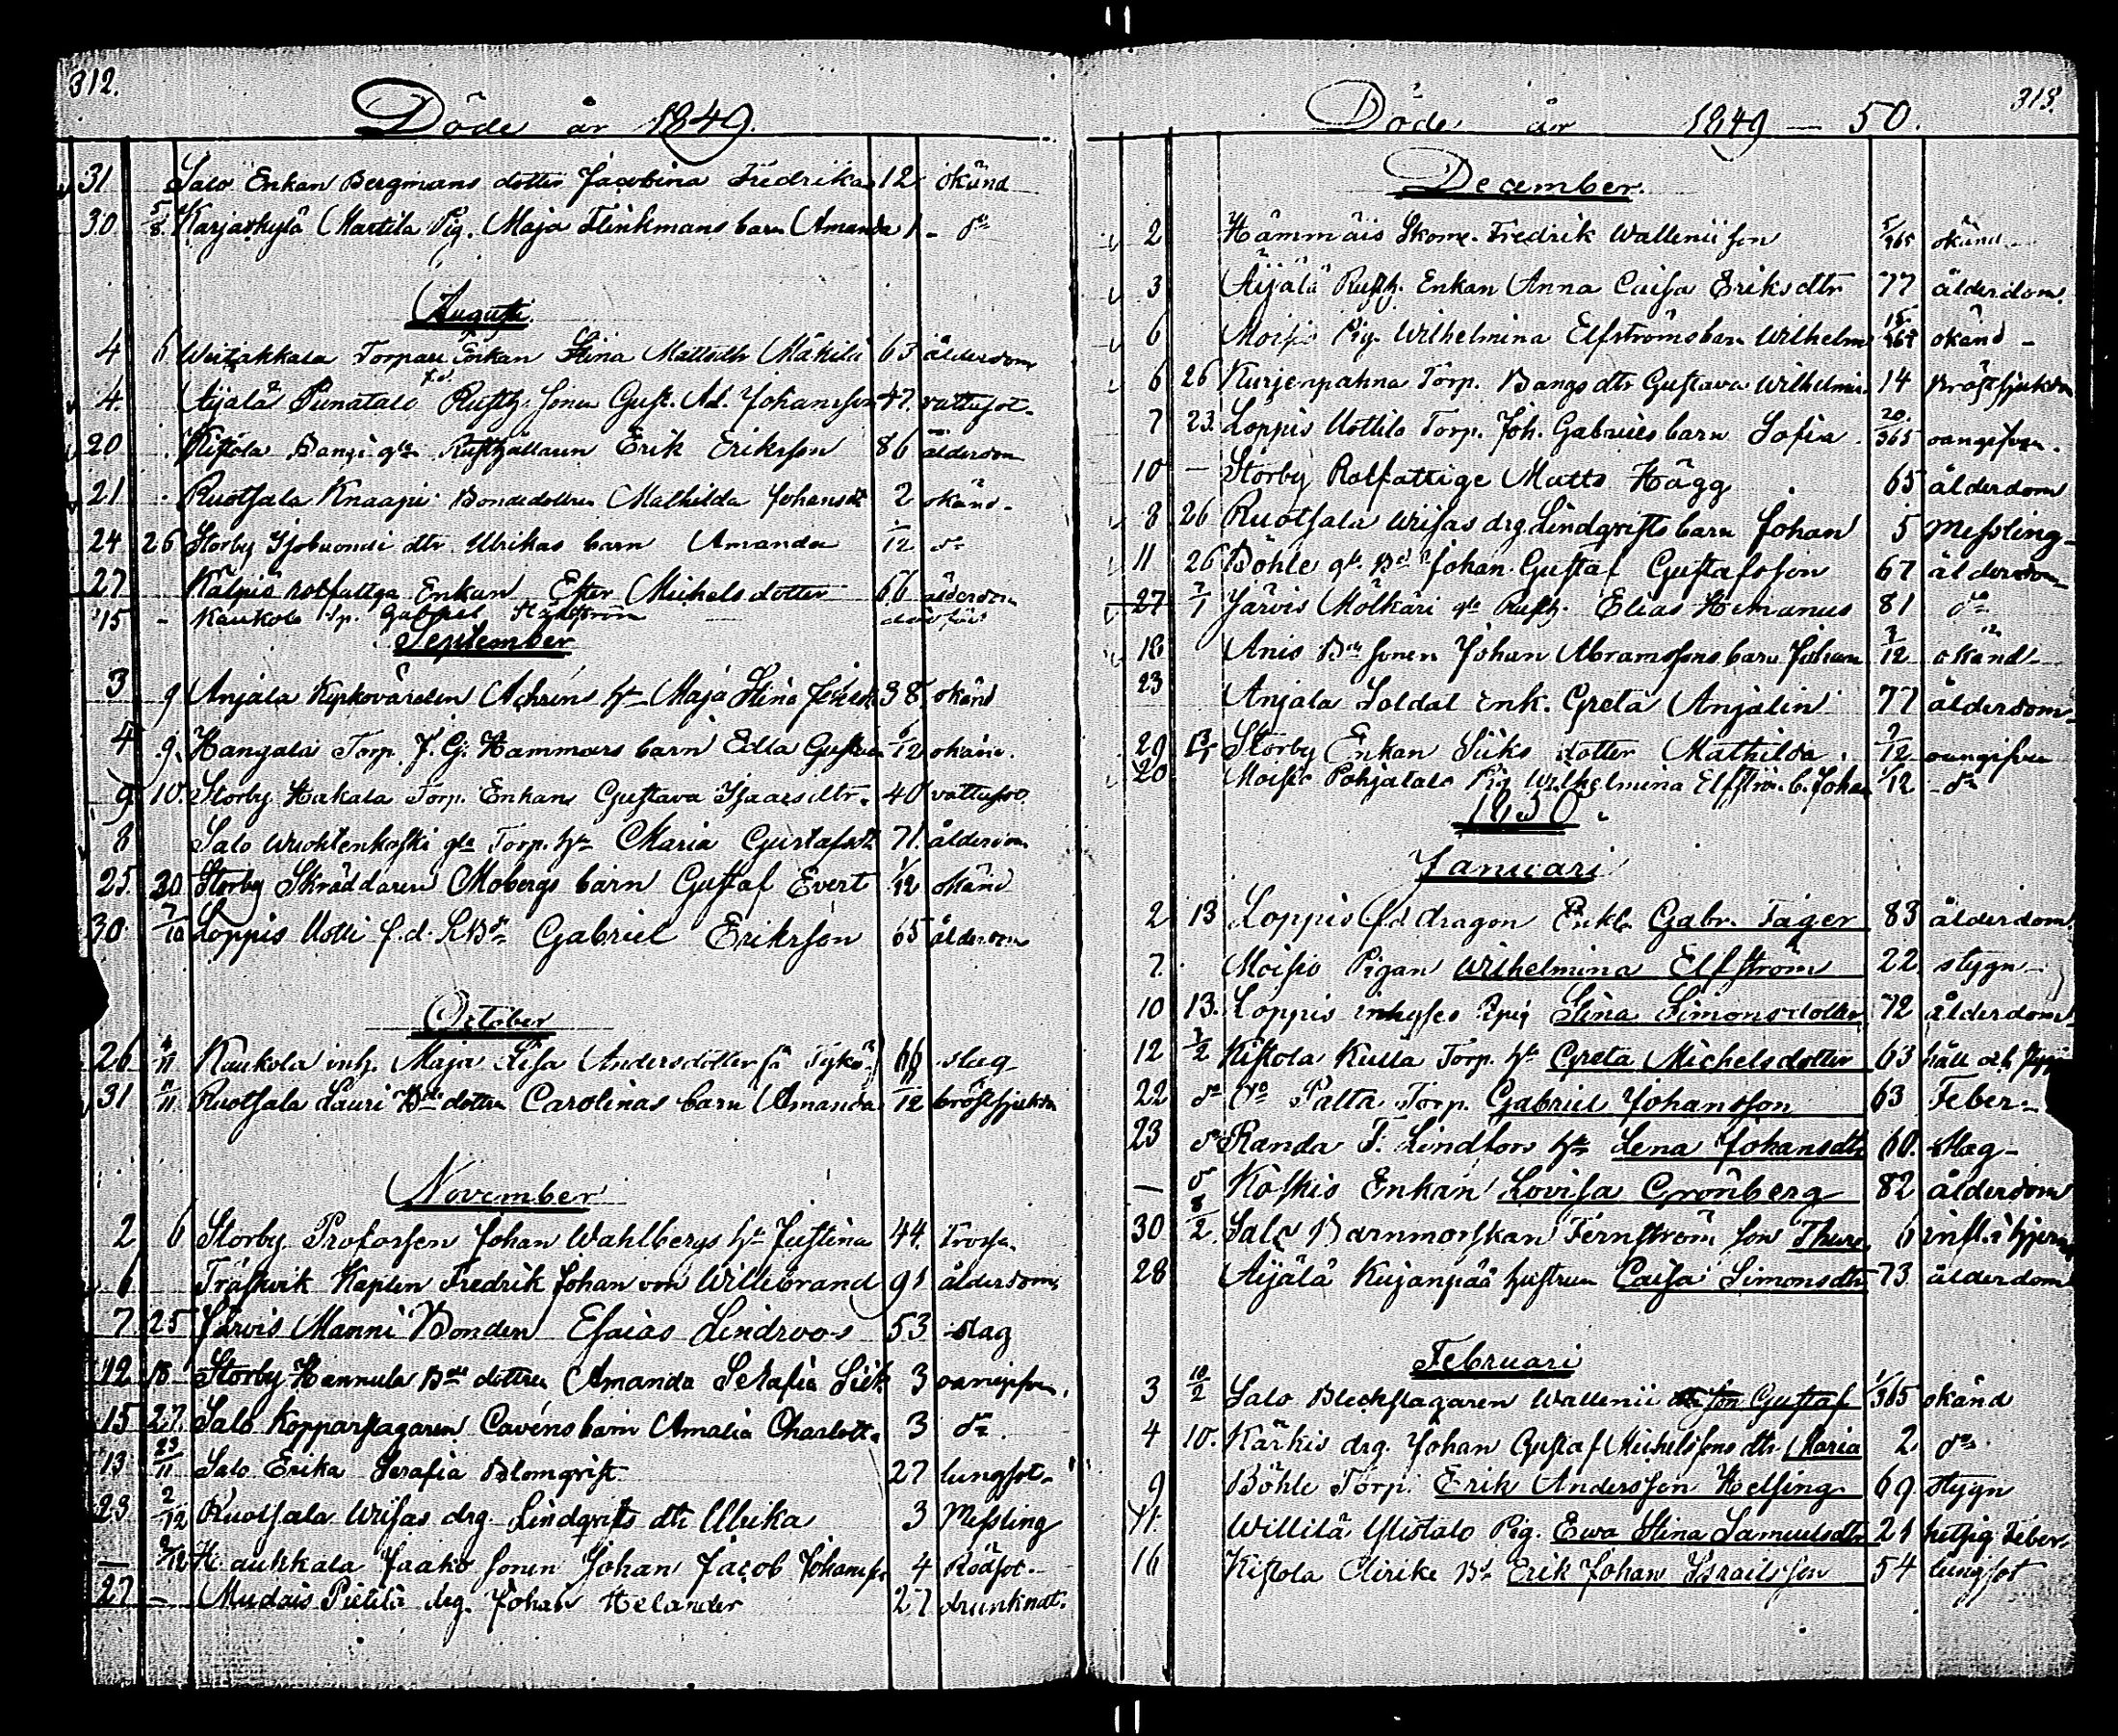 312.
Döde år 1849.
31 Salo Enkan Bergmans dotter Jacobina Fredrika 12 okänd
30 5/8 Karjaskylä Martila Pig. Maja Flinkmans barn Amanda 1 - do
Augusti.
4 6 Torpare Enkan Stina Mattsdtr Mäkilä 63 ålderdom
4. Äijälä Rusth. Sonen Gust. Ad. Johansson 47. vattusot.
20 Kistola Bangi gle Rusthållaren Erik Eriksson 86 ålderdom
21 Ruotsala Knaapi Bondedottren Mathilda Johansdt 2 okänd.
24 26 Storby dtr Ulrikas barn Amanda 1/12 do
27 Kälpis rotfattga Enkan Ester Michelsdotter 66 ålderdom
15 - Kaukola Gabriel
September
3 9 Anjala Kyrkovärden Achréns hu Maja Stina 38. okänd
4 9. Hangala Torp. J. G. Hammars barn Edla Gustava 6/12 okänd.
9 10. Storby Hakala Torp. Enkan Gustava Isaacsdtr. 40 vattusot.
8 Salo Wuohtenkoski gle Torp. hu Maria Gustafsdt 71. ålderdom
25. 30 Storby Skräddaren Mobergs barn Gustaf Evert 1/12 okänd
30 7/10 Loppis Uotti f.d. RBdn Gabriel Eriksson 65 ålderdom
October
26 4/11 Kaukola inh. Maja Lisa Andersdotter få Tykö 66 slag
31 4/11 Ruotsala Lauri Bde dottren Carolinas barn Amanda 11/12 bröstsjukdm
November
2 6 Storby Profossen Johan Wahlbergs hu Justina 44. Trossa.
6 Träskvik Kapten Fredrik Johan von Willebrand 91 ålderdom
7 25 Järvis Manni Bonden Esaias Lindroos 53 slag
12 18 Storby Hannula Bde dottren Amanda Serafia 3 oangifven.
15 27. Salo Kopparslagaren Cavéns barn Amalia Charlott. 3 do.
13 25/11 Salo Erika Serafia Blomqvist. 27 lungsot.
23 2/12 Ruotsala Wrisas drg Lindqvists dtr Ulrika 3 Messling
— 9/12 Haukkala Jaako sonen Johan Jacob Johansson 4 Rödsot.
27 - Mudais Pietilä drg. Johan Helander 27 drunknat.
313.
Döde år 1849 — 50.
December.
2 Hämmäis Skom. Fredrik Wallenii son 5/365 okänd
3 Äijälä Rusth. Enkan Anna Caisa Eriksdtr 77 ålderdom.
6 Moisio Pig. Wilhelmina Elfströms barn Wilhelm 15/365 okänd -
6 26 Kurjenpahna Torp. Bangs dtr Gustava Wilhelmin. 14 Bröstsjukdom
7 23. Loppis Uottila Torp. Joh. Gabriels barn Sofia. 20/365 oangifven.
10 — Storby Rotfattige Matts Hägg 65 ålderdom
8 26 Ruotsala Wrisas drg Lindqvists barn Johan 5 Messling
11 26 Böhle gle Bd Johan Gustaf Gustafsson 67 ålderdom
27 7/1 Järvis Mälkäri gle Rusth. Elias Hemanus 81 do
18 Anis Bde sonen Johan Abramssons barn Johan 7/12 okänd
23 Anjala Soldat enk. Greta Anjalin 77 ålderdom
29 13/1 Storby Enkan Siiks dotter Mathilda. 7/12 oangifven
20 Moisio Pohjatalo Pig Wilhelmina Elfström. b. Johan 1/12 - do
1850.
Januari
2 13 Loppis f.d dragon Enkl. Gabr. Tager 83 ålderdom.
7. Moisio Pigan Wilhelmina Elfström 22 stygn
10 13. Loppis inhyses Epig Stina Simonsdotter 72 ålderdom
12 3/2 Kistola Kulla Torp. hu Greta Michelsdotter 63 håll och stygn
22 do do Palta Torp. Gabriel Johansson 63 Feber
23 do Randa T. Lindfors hu Lena Johansdtr 60. slag
— do Koskis Enkan Lovisa Grönberg 82 ålderdom
30 8/2. Salo Barnmorskan Fernström son Thure 6 infl. i hjern
28 Äijälä Kujanpää hustrun Caisa Simonsdtr 73 ålderdom
Februari
3 10/2 Salo Bleckslagaren Wallenii son Gustaf 1/365 okänd
4 10. Kärkis drg. Johan Gustaf Michelssons dtr. Maria 2. do
9 Böhle Torp. Erik Andersson Helsing 69 stygn
11. Willilä Ylistalo Pig. Ewa Stina Samuelsdtr 21 hetsig Feber
16 Kistola Clirike Bd Erik Johan Israelsson 54 lungsot